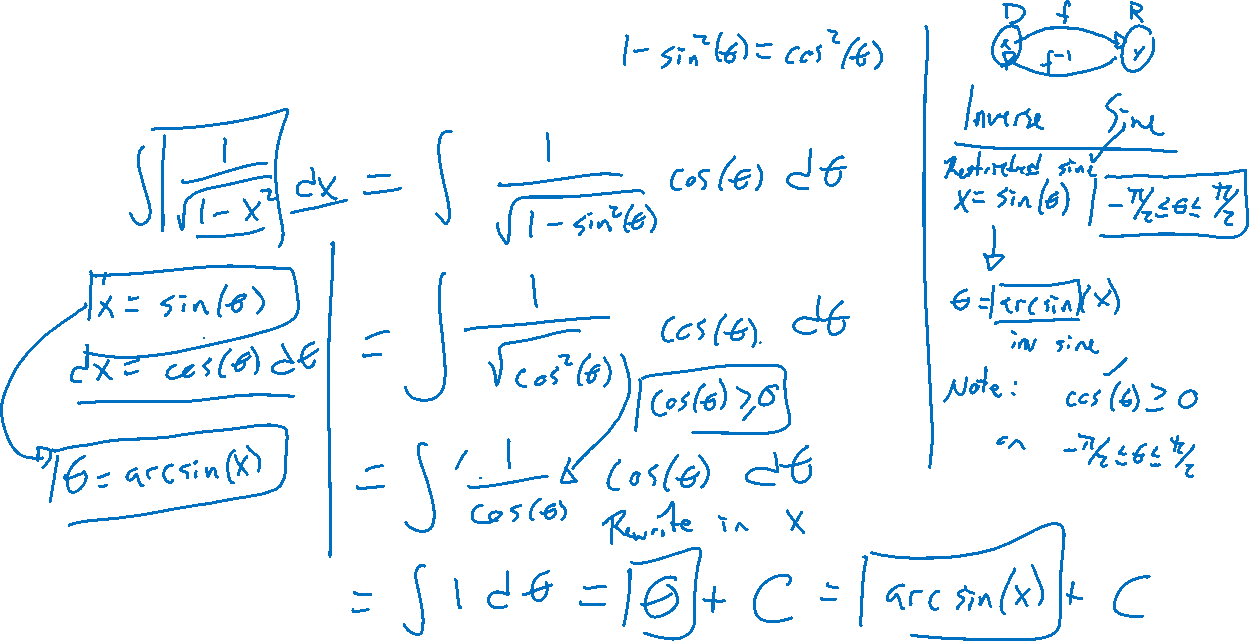 1 - sin²(θ) = cos²(θ)
∫ 1/√(1 - x²) dx = ∫ 1/√(1 - sin²(θ)) cos(θ) dθ
x = sin(θ)
dx = cos(θ) dθ
θ = arcsin(x)
= ∫ 1/√(cos²(θ)) cos(θ) dθ
cos(θ) ≥ 0
= ∫ 1/cos(θ) cos(θ) dθ
Rewrite in x
= ∫ 1 dθ = θ + C = arcsin(x) + C
D f R
x f⁻¹ y
Inverse Sine
Restricted sine
x = sin(θ) -π/2 ≤ θ ≤ π/2
θ = arcsin(x)
inv sine
Note: cos(θ) ≥ 0
on -π/2 ≤ θ ≤ π/2